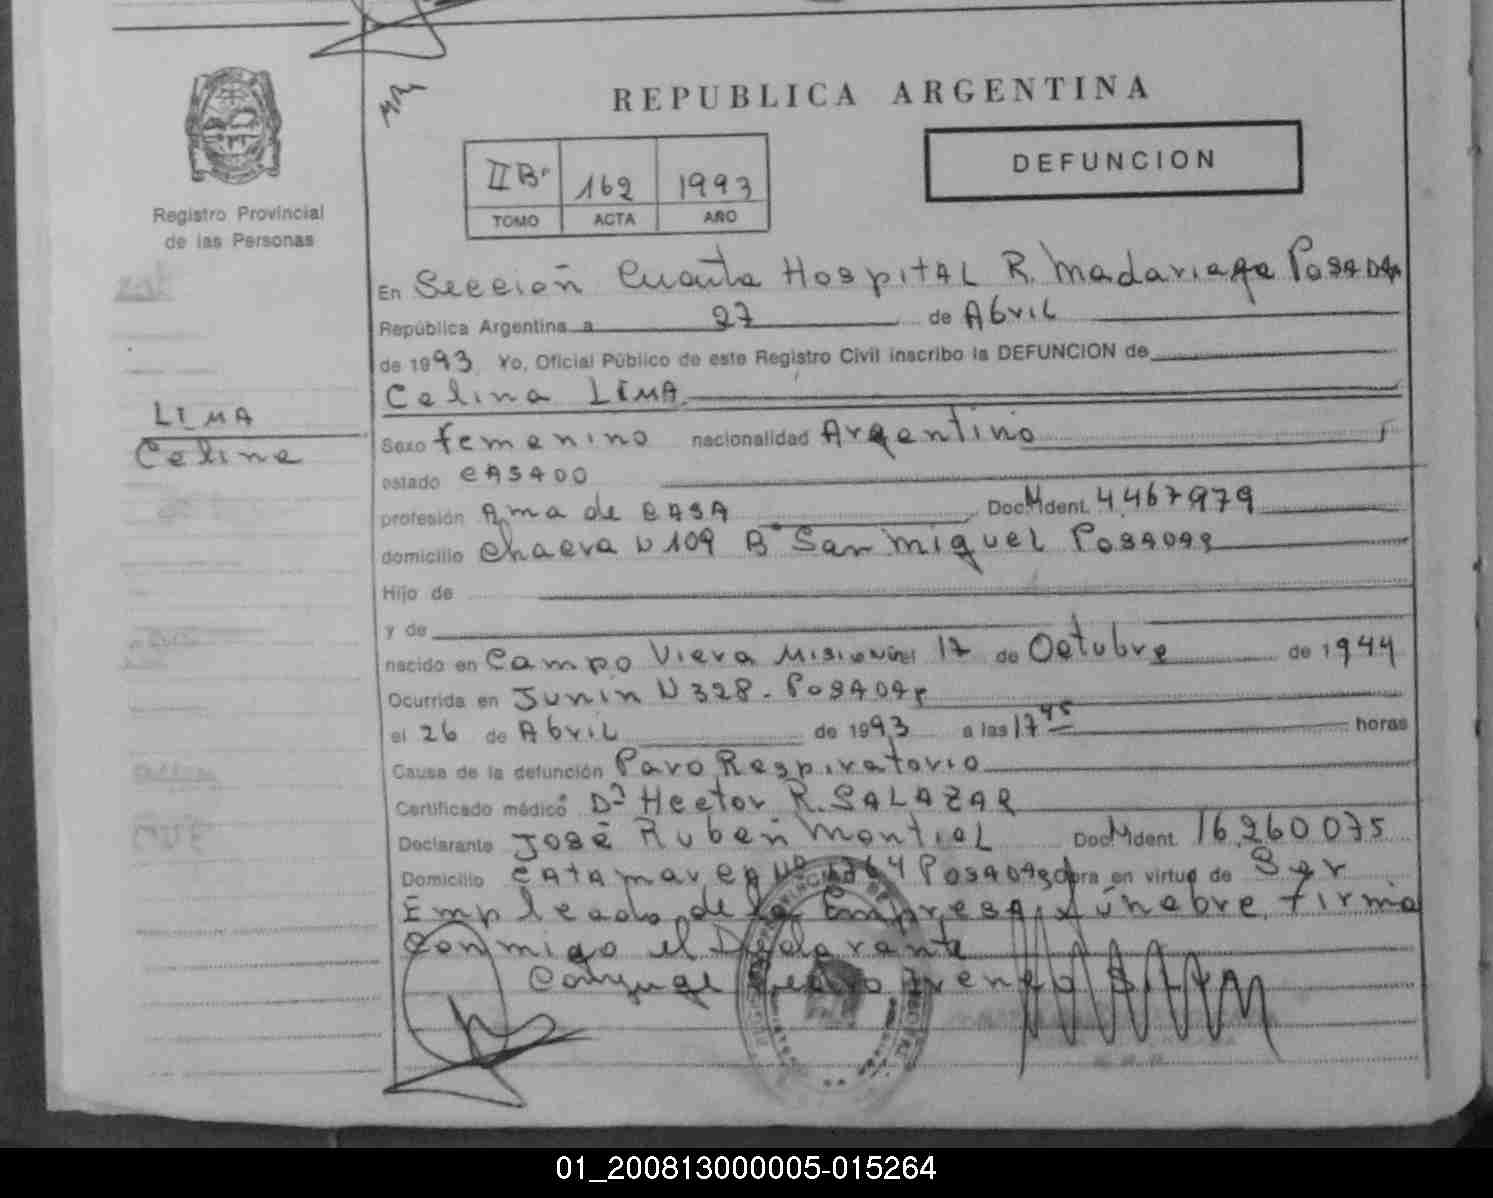 REPUBLICA ARGENTINA
DEFUNCION
II Bº 162 1993
TOMO ACTA AÑO
Registro Provincial
de las Personas
LIMA
Celina
En Sección Cuarta Hospital R. Madariaga Posadas
República Argentina a 27 de Abril
de 1993. Yo, Oficial Público de este Registro Civil inscribo la DEFUNCION de
Celina LIMA
Sexo femenino nacionalidad Argentino
estado CASADO
profesión Ama de CASA Doc. M Ident. 4.467.979
domicilio Chacra N 109 Bº San Miguel Posadas
Hijo de
y de
nacido en Campo Viera Misiones 17 de Octubre de 1944
Ocurrida en Junin N 328 - Posadas
el 26 de Abril de 1993 a las 17 45 horas
Causa de la defunción Paro Respiratorio
Certificado médico Dr Hector R. SALAZAR
Declarante José Ruben Montiel Doc. M Ident. 16.260.075
Domicilio Catamarca Nº Posadas obra en virtud de Ser
Empleado de la Empresa fúnebre, firma
conmigo el Declarante
Conyuge
01_200813000005-015264